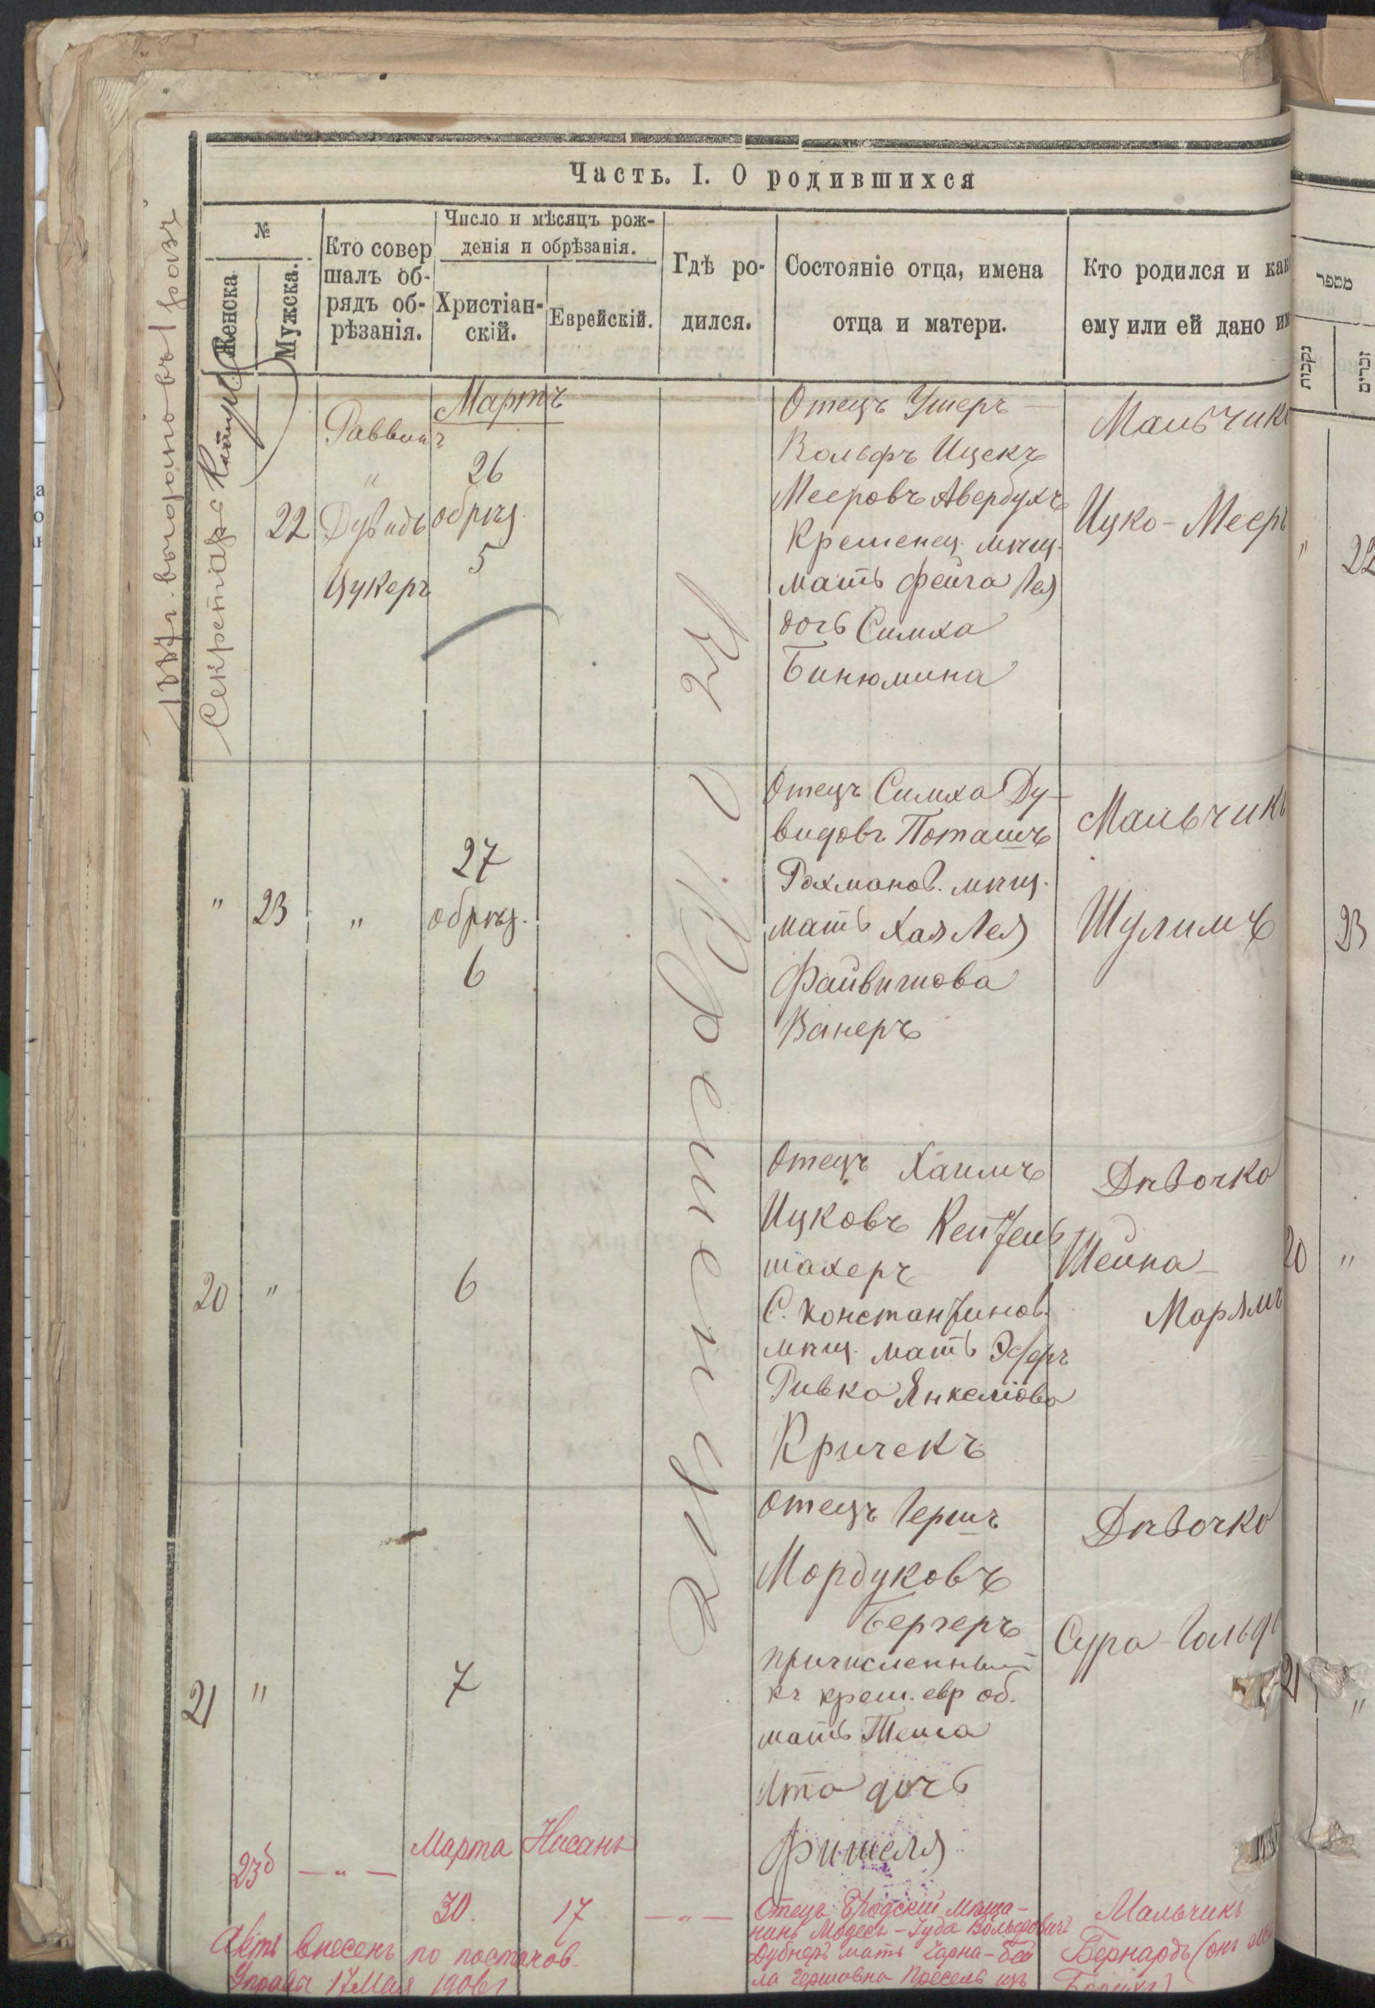 Часть. I. О родившихся
№
Женска
Мужска.
Кто совер
шалъ об-
рядъ об-
рѣзанія.
Число и мѣсяцъ рож-
денія и обрѣзанія.
Христіан-
скій.
Еврейскій.
Гдѣ ро-
дился.
Состояніе отца, имена
отца и матери.
Кто родился и как
ему или ей дано им
מספר
נקבות
זכרים
1887 г. выдано въ 1 разъ
Секретарь
22
Раввинъ
"
Дувидъ
Цукеръ
Мартъ
26
обрѣз.
5
Отецъ Ушеръ
Вольфъ Ицекъ
Мееровъ Авербухъ
Кременец. мѣщ.
мать Фейга Лея
дочь Симха
Бинюмина
Мальчикъ
Ицко-Мееръ
" 22
въ г. Кременцѣ
" 23 "
27
обрѣз.
6
Отецъ Симха Ду-
видовъ Поташъ
Рахманов. мѣщ.
мать Хая Лея
Файвишова
Ванеръ
Мальчикъ
Шулимъ
23
20 "
6
Отецъ Хаимъ
Ицковъ
шахеръ
С. Константинов.
мѣщ. мать Эстеръ
Ривка Янкелiова
Кричекъ
Дѣвочка
Шейна-
Марямъ
20 "
21 "
7
Отецъ Гершъ
Мордуковъ
Бергеръ
причисленный
къ крем. евр об.
мать
Ита дочь
Фишеля
Дѣвочка
Сура-Гольд
21 "
23б — " —
Марта
30.
Нисанъ
17
— " —
Отецъ Бродскій мѣща-
нинъ Мойсей-Іуда Вольфовичъ
Дубнеръ мать Чарна-Бей
ла Гершовна Пресель изъ
Мальчикъ
Бернардъ (онъ же
Актъ внесенъ по постанов.
Управы 17 Мая 1906 г